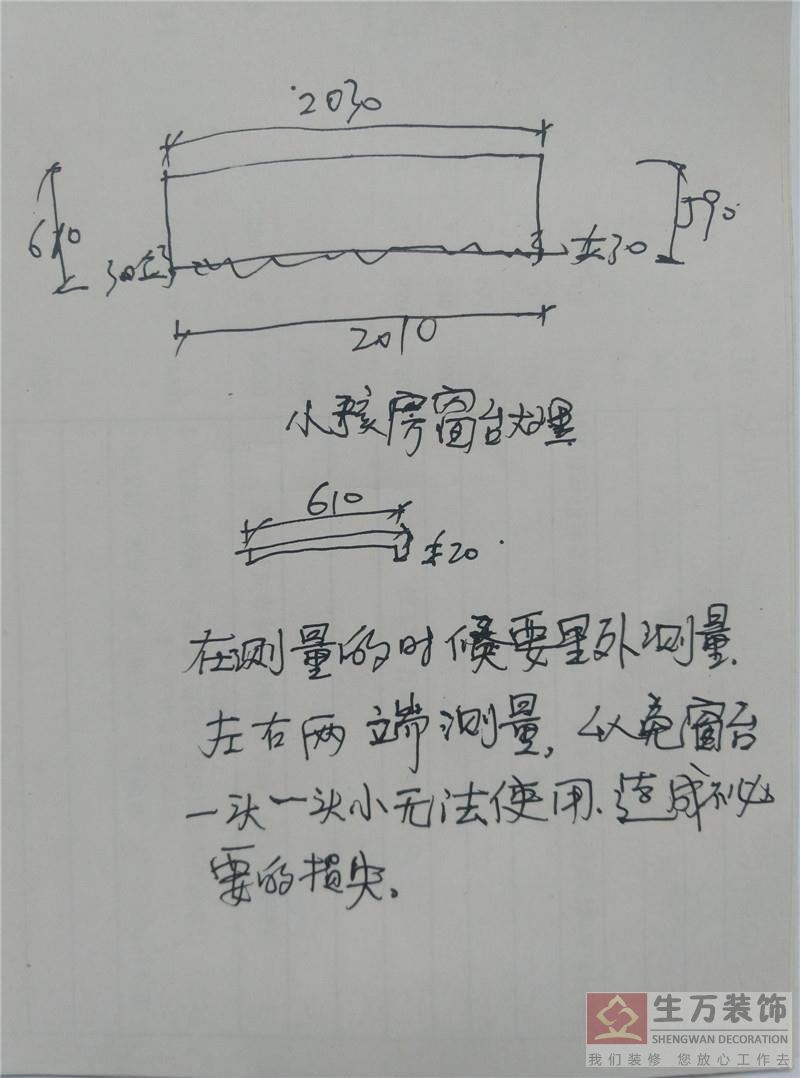 2030
610
590
30
30
2010
小孩房窗台大理
610
20
在测量的时候要里外测量.
左右两端测量,以免窗台
一头一头小无法使用.造成不必
要的损失.
生万装饰
SHENGWAN DECORATION
我们装修 您放心工作去